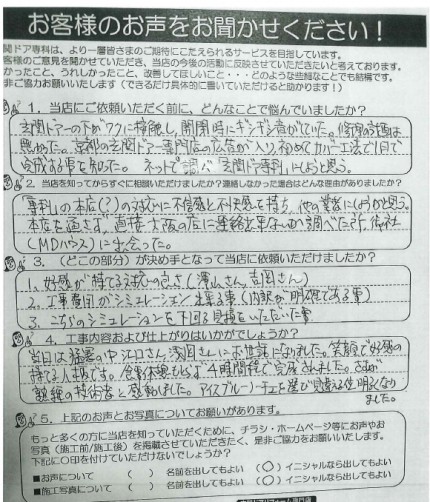 お客様のお声をお聞かせください！
関ドア専科は、より一層皆さまのご期待にこたえられるサービスを目指しています。
客様のご意見を聞かせていただき、当店の今後の活動に反映させていただきたいと考えております。
かったこと、うれしかったこと、改善してほしいこと・・・どのような些細なことでも結構です。
非ご協力お願いいたします（できるだけ具体的に書いていただけると助かります！）
1．当店にご依頼いただく前に、どんなことで悩んでいましたか？
玄関ドアーの下がワクに接触し、開閉時にギシギシ音がでていた。
京都の玄関ドアー専門店の広告が入り、初めてカバー工法で1日で
完成する事を知った。ネットで調べ「玄関ドア専科」にしようと思う。
2．当店を知ってからすぐに相談いただけましたか？連絡しなかった場合はどんな理由がありましたか？
「専科」の本店（？）の対応に不信感と不快感を持ち、他の業者にしようかと思う。
本店を通さず、直接大阪の店に連絡出来ないか調べた所、御社
（MDハウス）に出会った。
3．（どこの部分）が決め手となって当店に依頼いただけましたか？
1、好感が持てる対応の良さ（澤山さん、吉岡さん）
2、工事費用がシミュレーション出来る事（内訳が明確である事）
3、こちらのシミュレーションを下回る見積をいただいた事
4．工事内容および仕上がりはいかがでしょうか？
当日は猛暑の中江口さん、浅岡さんにお世話になりました。笑顔で好感の
持てる人柄です。4時間程で完成されました。さすが
熟練の技術者と感動しました。アイスブルーリーチェを選び見違える位明るくなり
ました。
5．上記のお声とお写真についてお願いがあります。
もっと多くの方に当店を知っていただくために、チラシ・ホームページ等にお声やお
写真（施工前/施工後）を掲載させていただきたく、是非ご協力をお願いいたします。
下記に〇印を付けていただけないでしょうか？
■お声について （ ） 名前を出してもよい （〇）イニシャルなら出してもよい
■施工写真について （ ） 名前を出してもよい （〇）イニシャルなら出してもよい